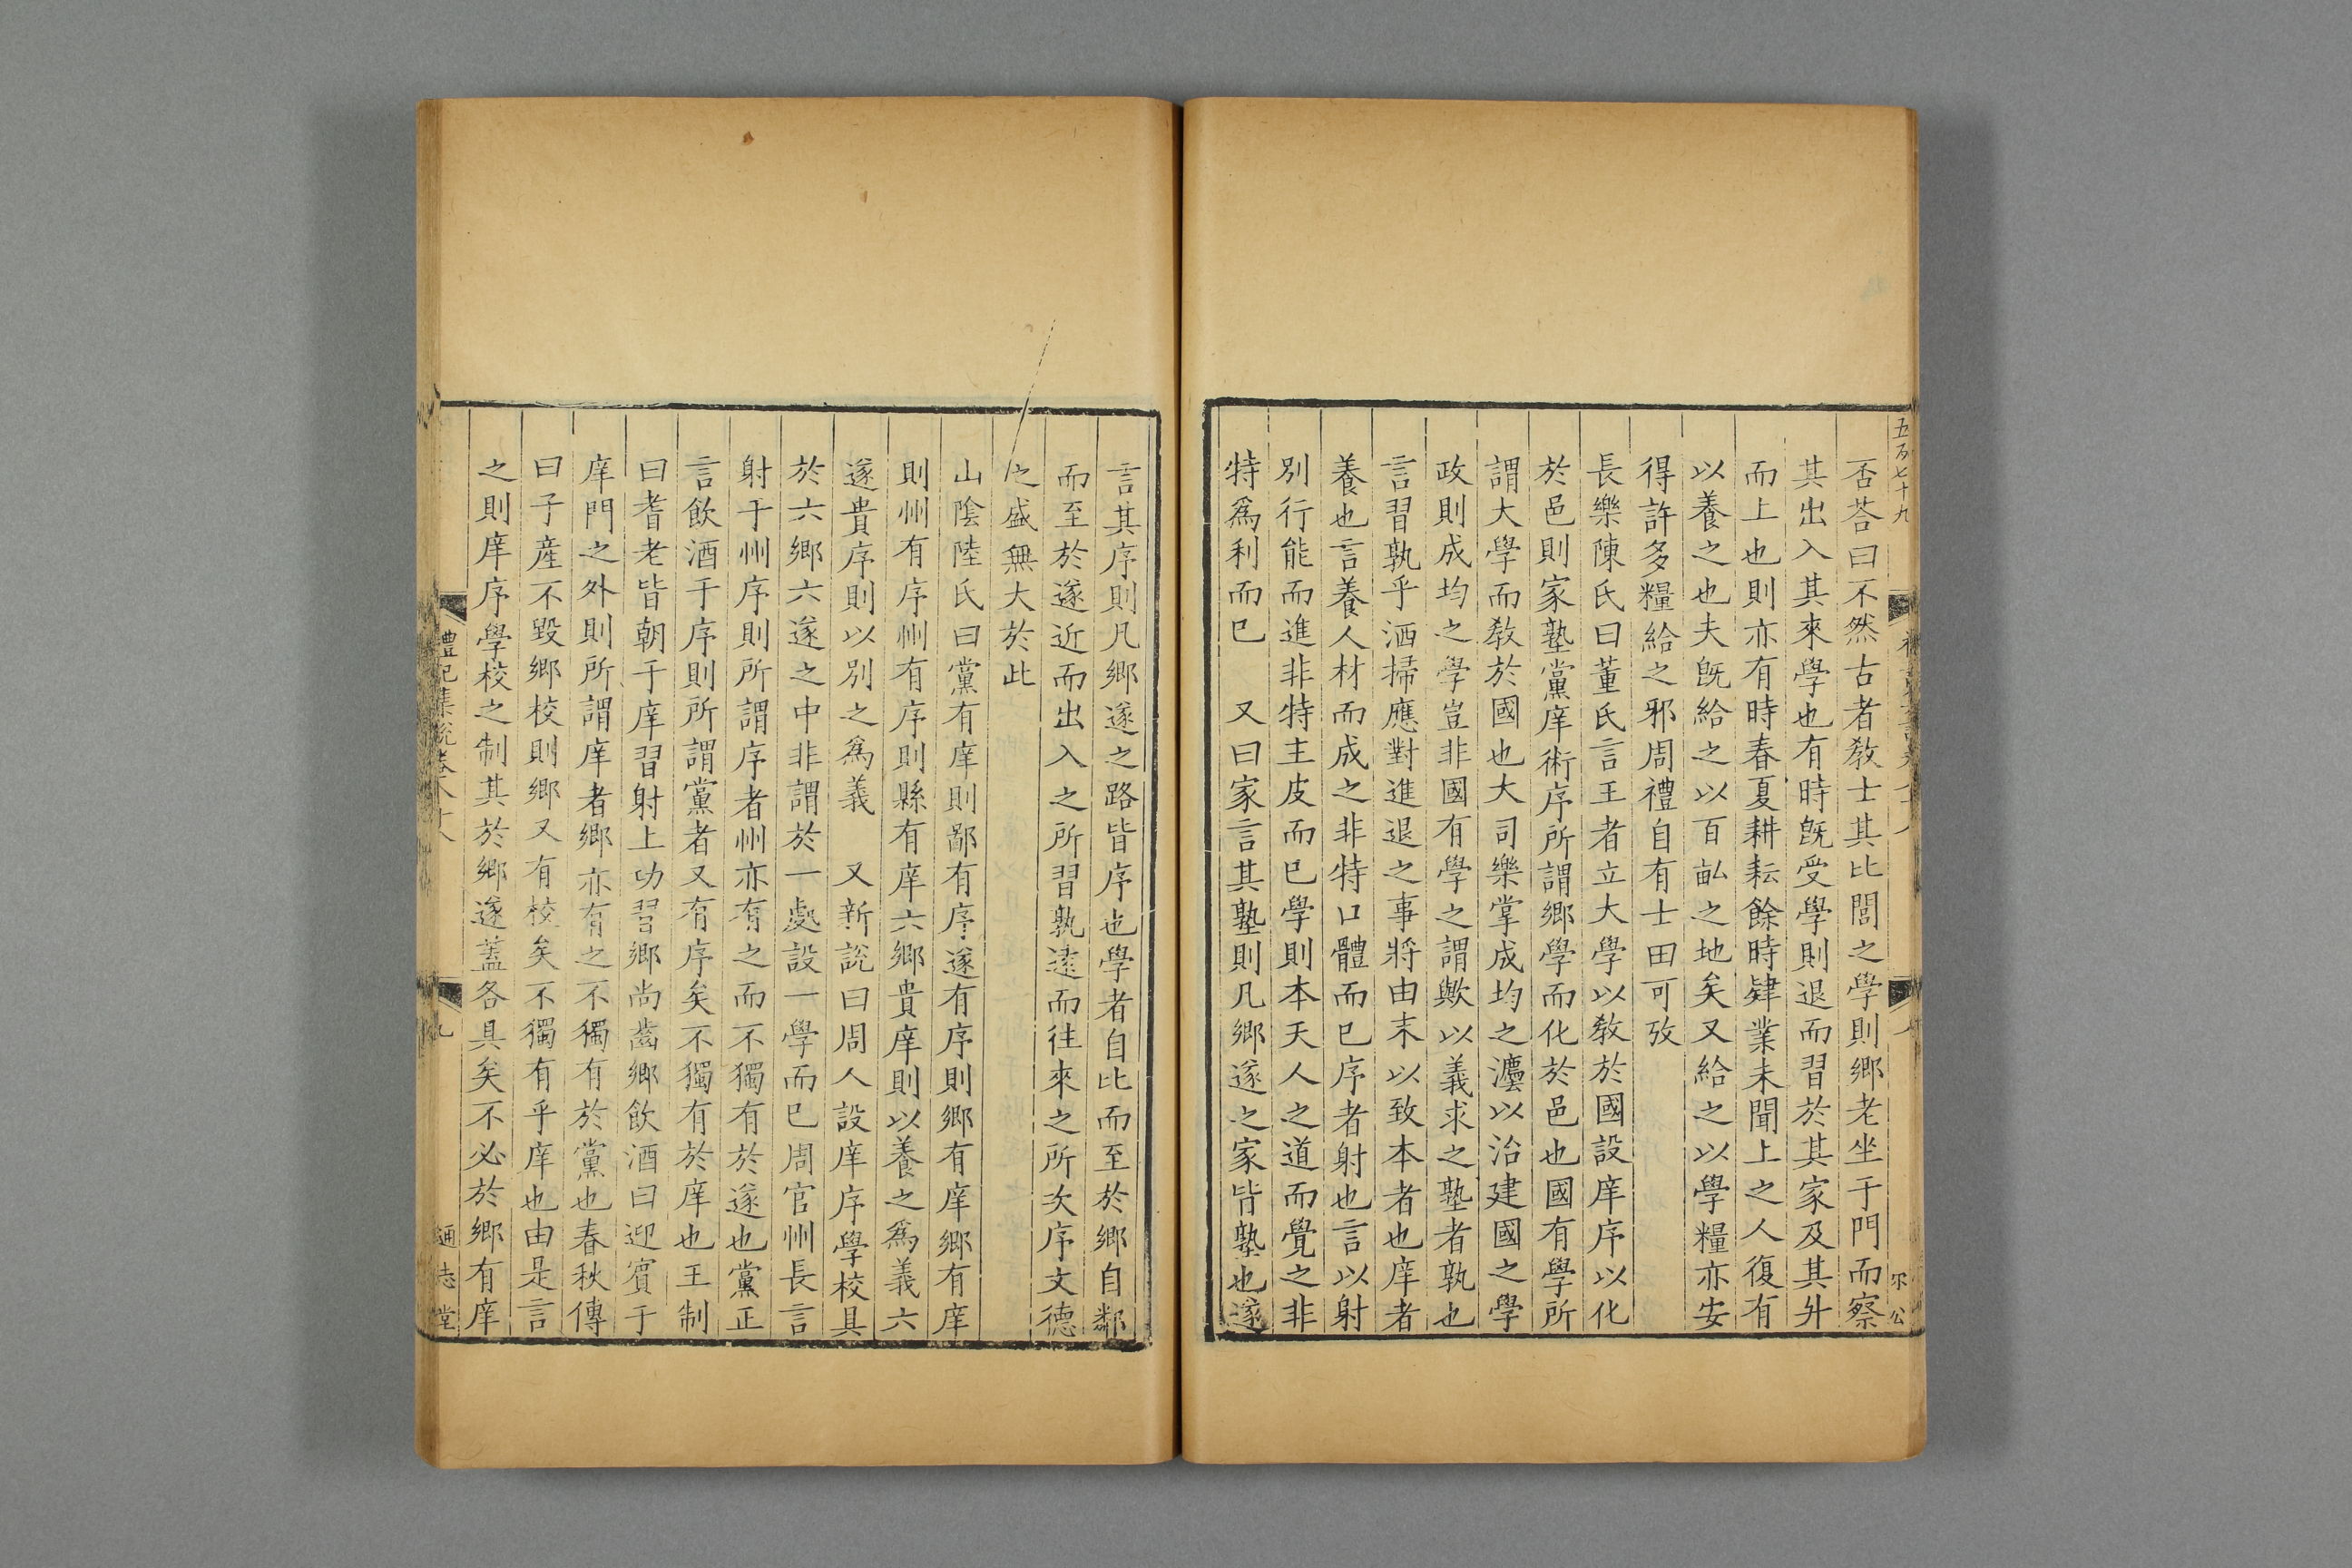 五百七十九
否荅曰不然古者敎士其比閭之學則鄉老坐于門而察
其出入其來學也有時旣受學則退而習於其家及其升
而上也則亦有時春夏耕耘餘時肄業未聞上之人復有
以養之也夫旣給之以百畝之地矣又給之以學糧亦安
得許多糧給之邪周禮自有士田可攷
長樂陳氏曰董氏言王者立大學以敎於國設庠序以化
於邑則家塾黨庠術序所謂鄉學而化於邑也國有學所
謂大學而敎於國也大司樂掌成均之灋以治建國之學
政則成均之學豈非國有學之謂歟以義求之塾者孰也
言習孰乎洒掃應對進退之事將由末以致本者也庠者
養也言養人材而成之非特口體而已序者射也言以射
別行能而進非特主皮而已學則本天人之道而覺之非
特爲利而已　又曰家言其塾則凡鄉遂之家皆塾也遂
言其序則凡鄉遂之路皆序也學者自比而至於鄉自鄰
而至於遂近而出入之所習孰遠而往來之所次序文德
之盛無大於此
山陰陸氏曰黨有庠則鄙有序遂有序則鄉有庠鄉有庠
則州有序州有序則縣有庠六鄉貴庠則以養之爲義六
遂貴序則以別之爲義　又新說曰周人設庠序學校具
於六鄉六遂之中非謂於一處設一學而已周官州長言
射于州序則所謂序者州亦有之而不獨有於遂也黨正
言飮酒于序則所謂黨者又有序矣不獨有於庠也王制
曰耆老皆朝于庠習射上功習鄉尚齒鄉飮酒曰迎賓于
庠門之外則所謂庠者鄉亦有之不獨有於黨也春秋傳
曰子產不毀鄉校則鄉又有校矣不獨有乎庠也由是言
之則庠序學校之制其於鄉遂蓋各具矣不必於鄉有庠
禮記集說卷八十八
九
通志堂